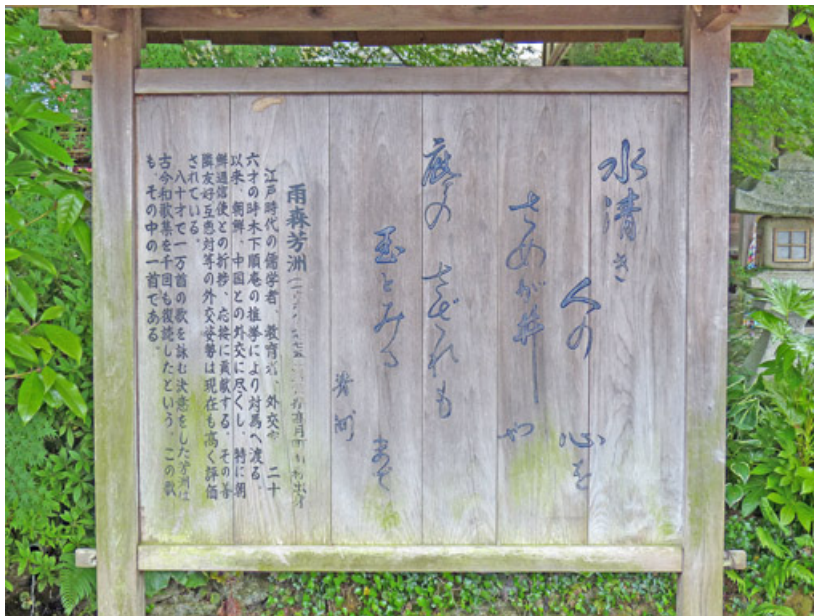 水清き
人の 心を
さめが井や
底の さざれも
玉とみるまで
芳洲
雨森芳洲
江戸時代の儒学者、教育者、外交官 二十
六才の時木下順庵の推挙により対馬へ渡る。
以来、朝鮮、中国との外交に尽くし、特に朝
鮮通信使との折衝、応接に貢献する。その善
隣友好互恵対等の外交姿勢は現在も高く評価
されている。
八十才で一万首の歌を詠む決意をした芳洲は
古今和歌集を千回も復読したという。この歌
も、その中の一首である。